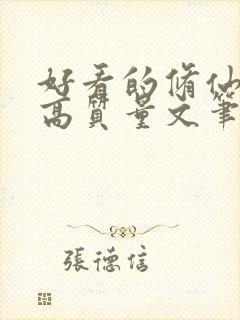 好看的脩仙
高質量文筆
張德信